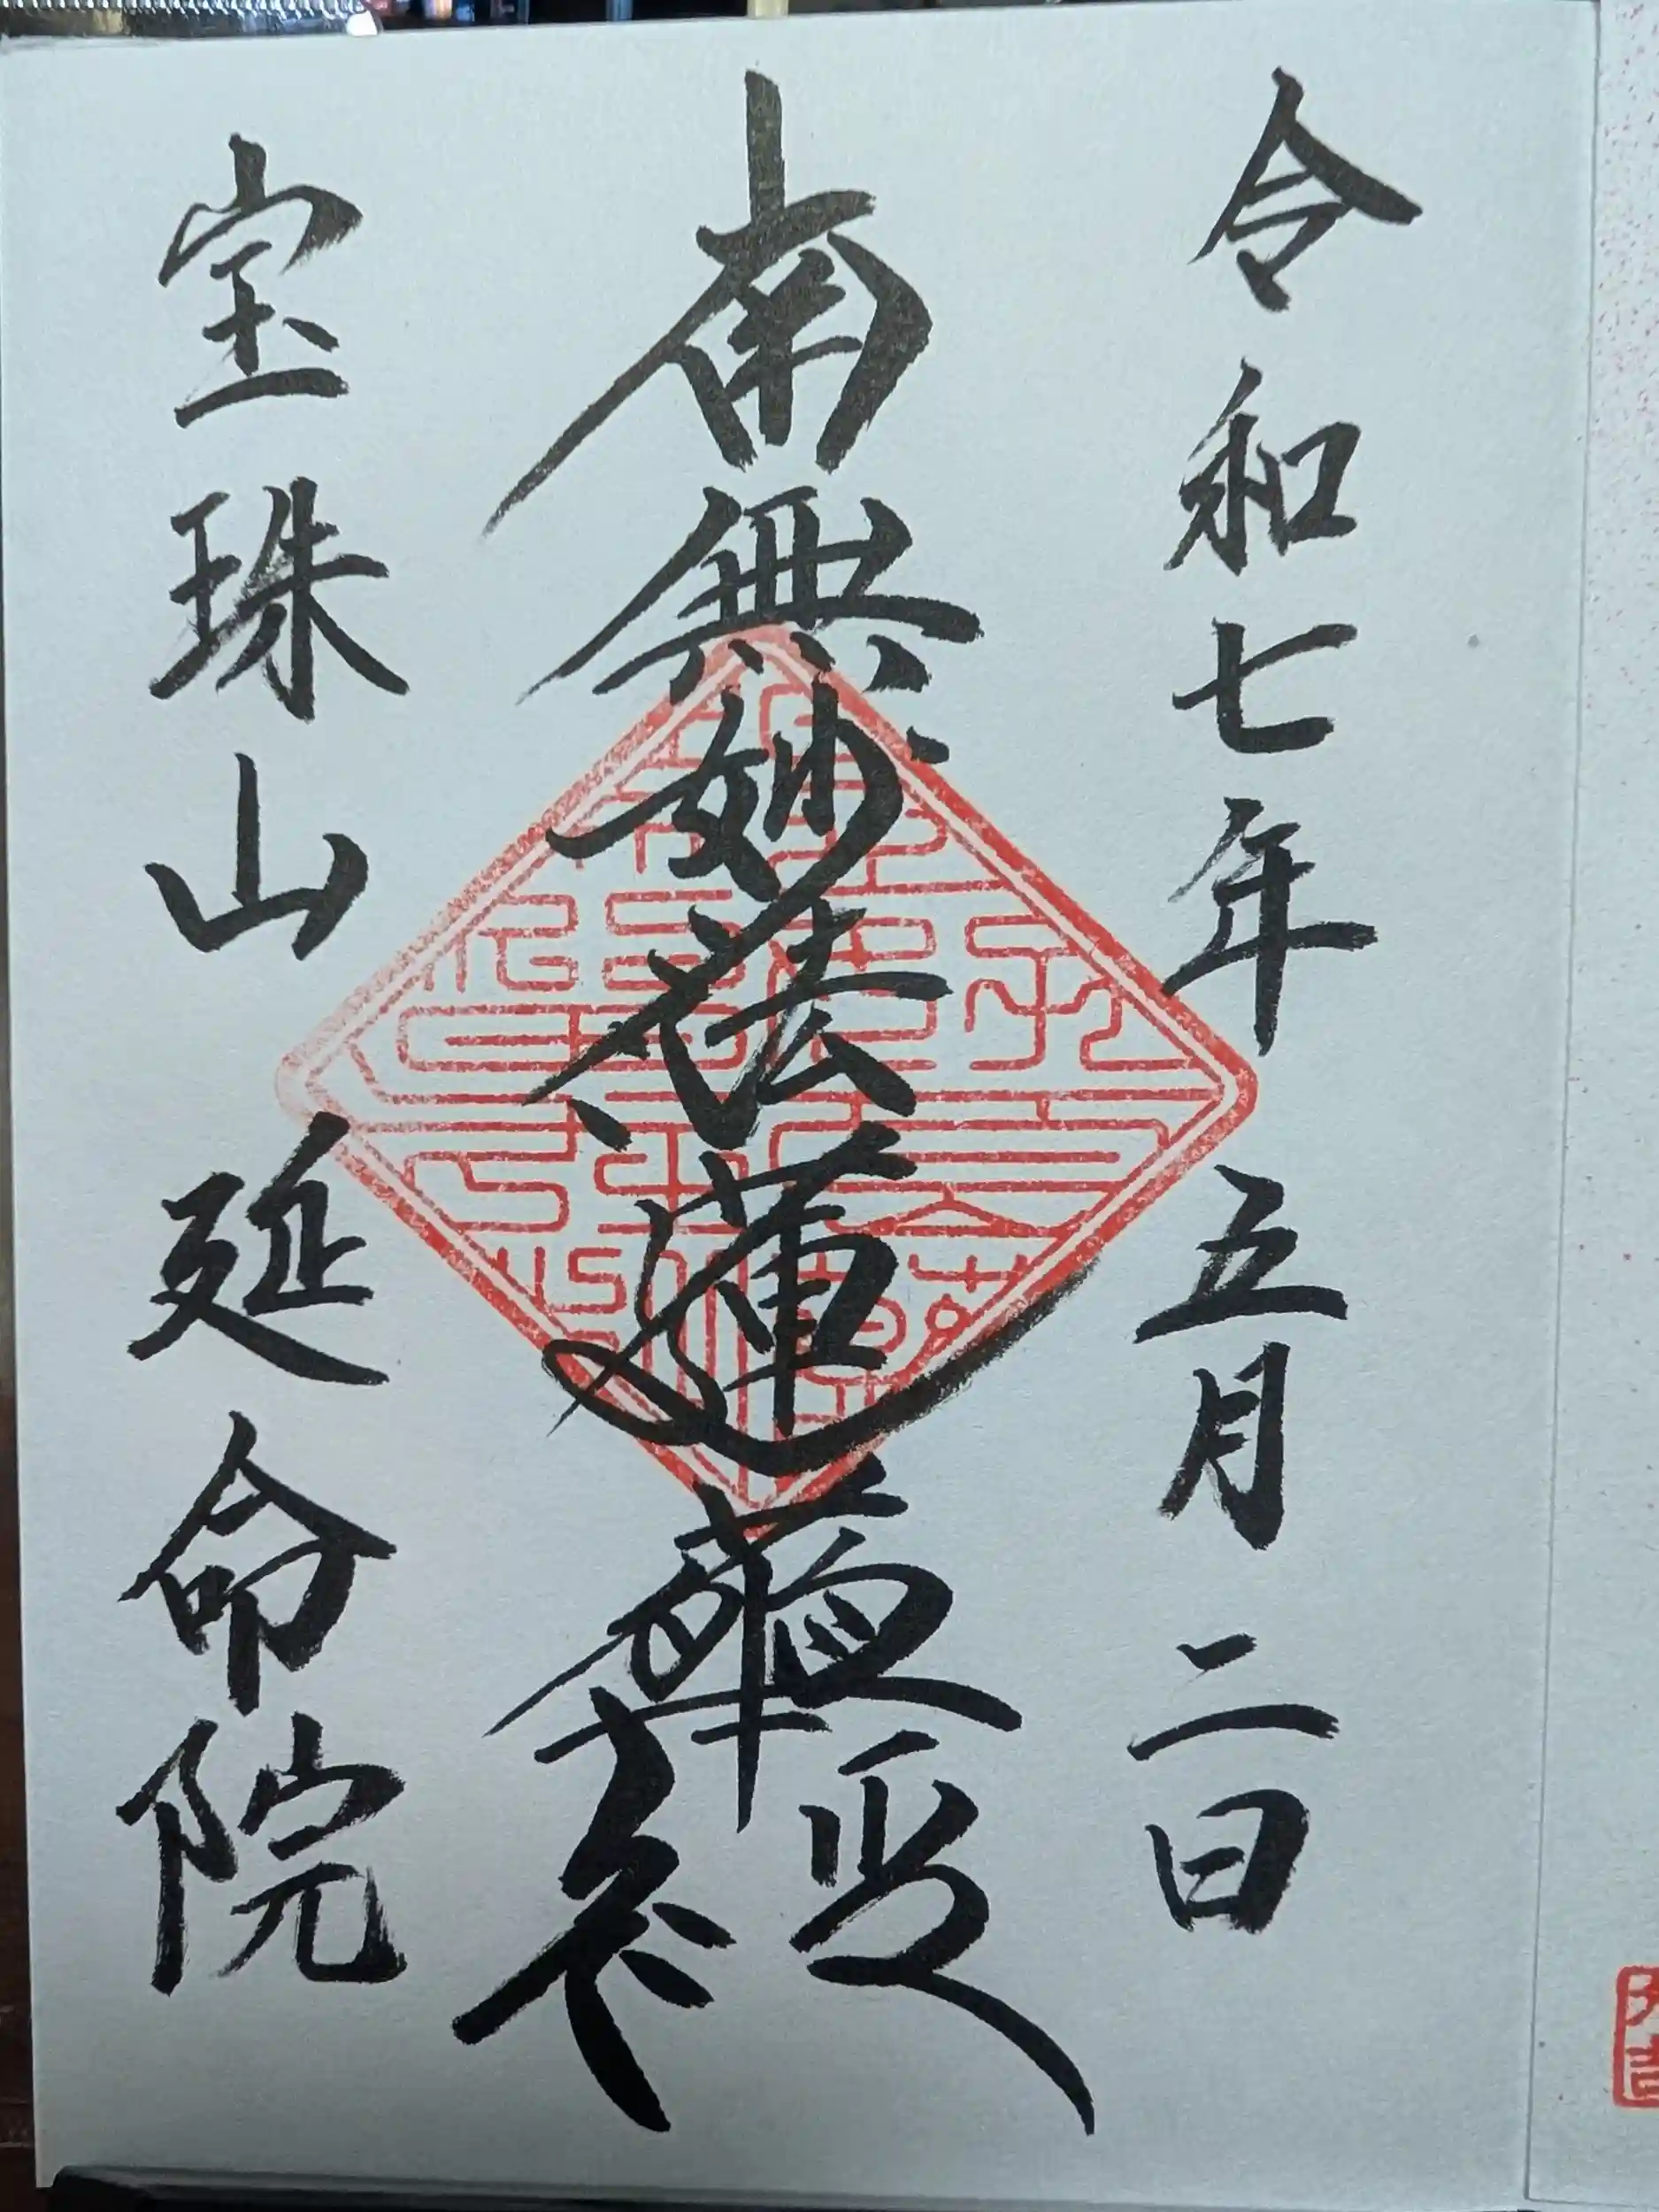 令和七年五月二日
南無妙法蓮華経
宝珠山延命院